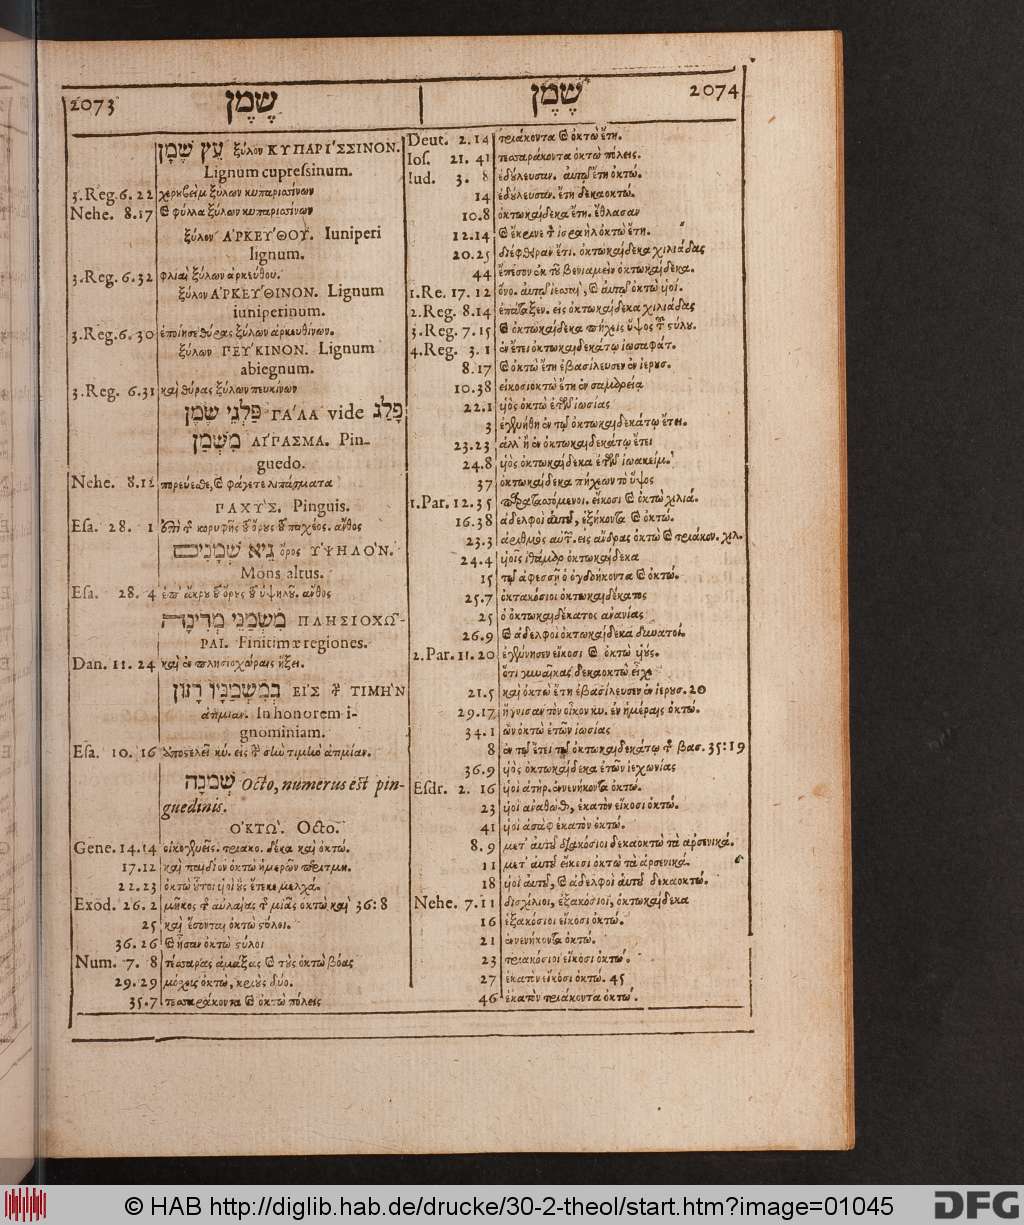 2073 שֶׁמֶן
שֶׁמֶן 2074
עֵץ שֶׁמֶן ξύλον ΚΥΠΑΡΙ΄ΣΣΙΝΟΝ.
Lignum cupressinum.
3. Reg. 6. 22 ξύλων κυπαρισσίνων
Nehe. 8.17 φύλλα ξύλων κυπαρισσίνων
ξύλον ἈΡΚΕΥ΄ΘΟΥ. Iuniperi
lignum.
3. Reg. 6. 32 φλιαὶ ξύλων ἀρκεύθου.
ξύλον ἈΡΚΕΥ΄ΘΙΝΟΝ. Lignum
iuniperinum.
3. Reg. 6. 30 ἐποίησε θύρας ξύλων ἀρκευθίνων.
ξύλων ΠΕΥΚΙΝΟΝ. Lignum
abiegnum.
3. Reg. 6.31 καὶ θύρας ξύλων πευκίνων
פַּלְגֵי שֶׁמֶן ΓΑ΄ΛΑ vide פָּלַג
מִשְׁמַן ΛΙ΄ΠΑΣΜΑ. Pin-
guedo.
Nehe. 8.12 πορεύεσθε, φάγετε λιπάσματα
ΠΑΧΥ῀Σ. Pinguis.
Esa. 28. 1 κορυφῆς ὄρους παχέος. ἄνθος
גֵּיא שְׁמָנִים ὄρος ὙΨΗΛΟ΄Ν.
Mons altus.
Esa. 28. 4 ἄκρου ὄρους ὑψηλοῦ. ἄνθος
מִשְׁמַנֵּי מְדִינָה ΠΛΗΣΙΟΧΩ΄-
ΡΑΙ. Finitimæ regiones.
Dan. 11. 24 καὶ ἐν πλησιοχώραις ἥξει.
בְּמִשְׁמַנָּיו רָזוֹן ΕΙΣ ΤΙΜΗ΄Ν
ἀτιμίαν. In honorem i-
gnominiam.
Esa. 10. 16 ἀποστελεῖ κύ. εἰς τιμὴν ἀτιμίαν.
שְׁמֹנָה Octo, numerus est pin-
guedinis.
ὈΚΤΩ΄. Octo.
Gene. 14.14 δέκα καὶ ὀκτώ.
17.12 καὶ παιδίον ὀκτὼ ἡμερῶν
22.23 ὀκτὼ οὗτοι υἱοὶ οὓς ἔτεκε μελχά.
Exod. 26. 2 μῆκος αὐλαίας μιᾶς ὀκτὼ καὶ 36:8
25 καὶ ἔσονται ὀκτὼ στύλοι.
36. 26 ἦσαν ὀκτὼ στύλοι
Num. 7. 8 τέσσαρας ἁμάξας τοὺς ὀκτὼ βόας
29. 29 μόσχους ὀκτώ, κριοὺς δύο.
35. 7 τεσσαράκοντα ὀκτὼ πόλεις
Deut. 2.14 τριάκοντα ὀκτὼ ἔτη.
Ios. 21. 41 τεσσαράκοντα ὀκτὼ πόλεις.
Iud. 3. 8 ἐδούλευσαν. ἔτη ὀκτώ.
14 ἐδούλευσαν. ἔτη δεκαοκτώ.
10.8 ὀκτωκαίδεκα ἔτη. ἔθλασαν
12.14 ἔκρινε ἰσραὴλ ὀκτὼ ἔτη.
20.25 διέφθειραν ἔτι. ὀκτωκαίδεκα χιλιάδας
44 ἔπεσον ἐκ τοῦ βενιαμεὶν ὀκτωκαίδεκα.
1. Re. 17. 12 ὀκτὼ υἱοί.
2. Reg. 8.14 ἐπάταξεν. εἰς ὀκτωκαίδεκα χιλιάδας
3. Reg. 7.15 ὀκτωκαίδεκα πήχεις ὕψος
4. Reg. 3. 1 ἐν ἔτει ὀκτωκαιδεκάτῳ ἰωσαφάτ.
8.17 ὀκτὼ ἔτη ἐβασίλευσεν ἐν ἱερουσ.
10.38 εἰκοσιοκτὼ ἔτη ἐν σαμαρείᾳ
22.1 υἱὸς ὀκτὼ ἐτῶν ἰωσίας
3 ἐγενήθη ἐν τῷ ὀκτωκαιδεκάτῳ ἔτει.
23.23 ἀλλ' ἢ ἐν ὀκτωκαιδεκάτῳ ἔτει
24.8 υἱὸς ὀκτωκαίδεκα ἐτῶν ἰωακείμ.
37 ὀκτωκαίδεκα πήχεων τὸ ὕψος
1. Par. 12. 35 παρατασσόμενοι. εἴκοσι ὀκτὼ χιλιά.
16.38 ἀδελφοὶ αὐτοῦ, ἑξήκοντα ὀκτώ.
23.3 ἀριθμὸς αὐτ. εἰς ἄνδρας ὀκτὼ τριάκον. χιλ.
24.4 υἱοῖς ἰθάμαρ ὀκτωκαίδεκα
15 ὀγδοήκοντα ὀκτώ.
25.7 ὀκτακόσιοι ὀκτωκαιδέκατος
25 ὁ ὀκτωκαιδέκατος ἀνανίας
26.9 ἀδελφοὶ ὀκτωκαίδεκα δυνατοί.
2. Par. 11. 20 ἐγέννησεν εἴκοσι ὀκτὼ υἱούς.
ὅτι γυναῖκας δεκαοκτὼ εἶχε
21.5 καὶ ὀκτὼ ἔτη ἐβασίλευσεν ἐν ἱερουσ. 20
29.17 ἥγνισαν τὸν οἶκον κυ. ἐν ἡμέραις ὀκτώ.
34. 1 ὢν ὀκτὼ ἐτῶν ἰωσίας
8 ἐν τῷ ἔτει τῷ ὀκτωκαιδεκάτῳ βασ. 35:19
36.9 υἱὸς ὀκτωκαίδεκα ἐτῶν ἰεχωνίας
Esdr. 2. 16 υἱοὶ ἀτήρ. ἐννενήκοντα ὀκτώ.
23 υἱοὶ ἀναθώθ, ἑκατὸν εἴκοσι ὀκτώ.
41 υἱοὶ ἀσὰφ ἑκατὸν ὀκτώ.
8. 9 μετ' αὐτοῦ διακόσιοι δεκαοκτὼ τὰ ἀρσενικά.
11 μετ' αὐτοῦ εἴκοσι ὀκτὼ τὰ ἀρσενικά.
18 υἱοὶ αὐτοῦ, ἀδελφοὶ αὐτοῦ δεκαοκτώ.
Nehe. 7.11 δισχίλιοι, ἑξακόσιοι, ὀκτωκαίδεκα
16 ἑξακόσιοι εἴκοσι ὀκτώ.
21 ἐννενήκοντα ὀκτώ.
23 τριακόσιοι εἴκοσι ὀκτώ.
27 ἑκατὸν εἴκοσι ὀκτώ. 45
46 ἑκατὸν τριάκοντα ὀκτώ.
© HAB http://diglib.hab.de/drucke/30-2-theol/start.htm?image=01045
DFG